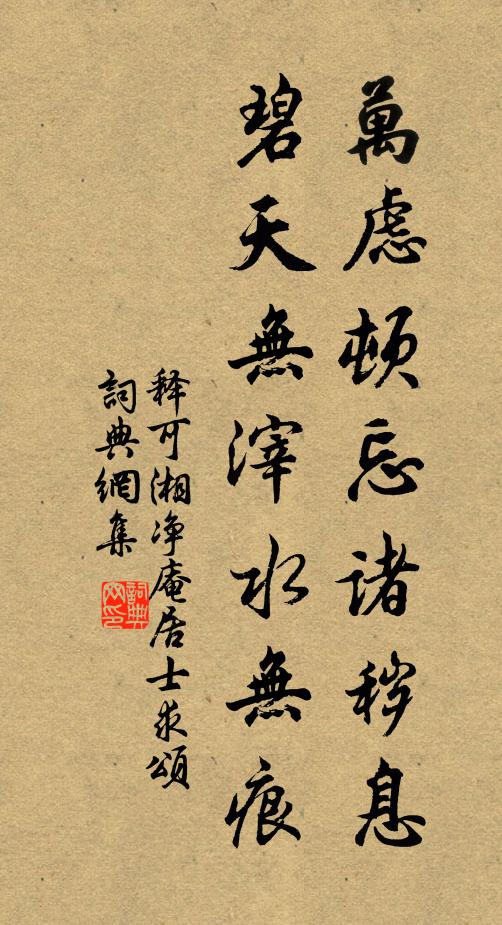 萬慮頓忘諸穢息
碧天無滓水無痕
释可湘净庵居士求頌
詞典網集
詞典网印